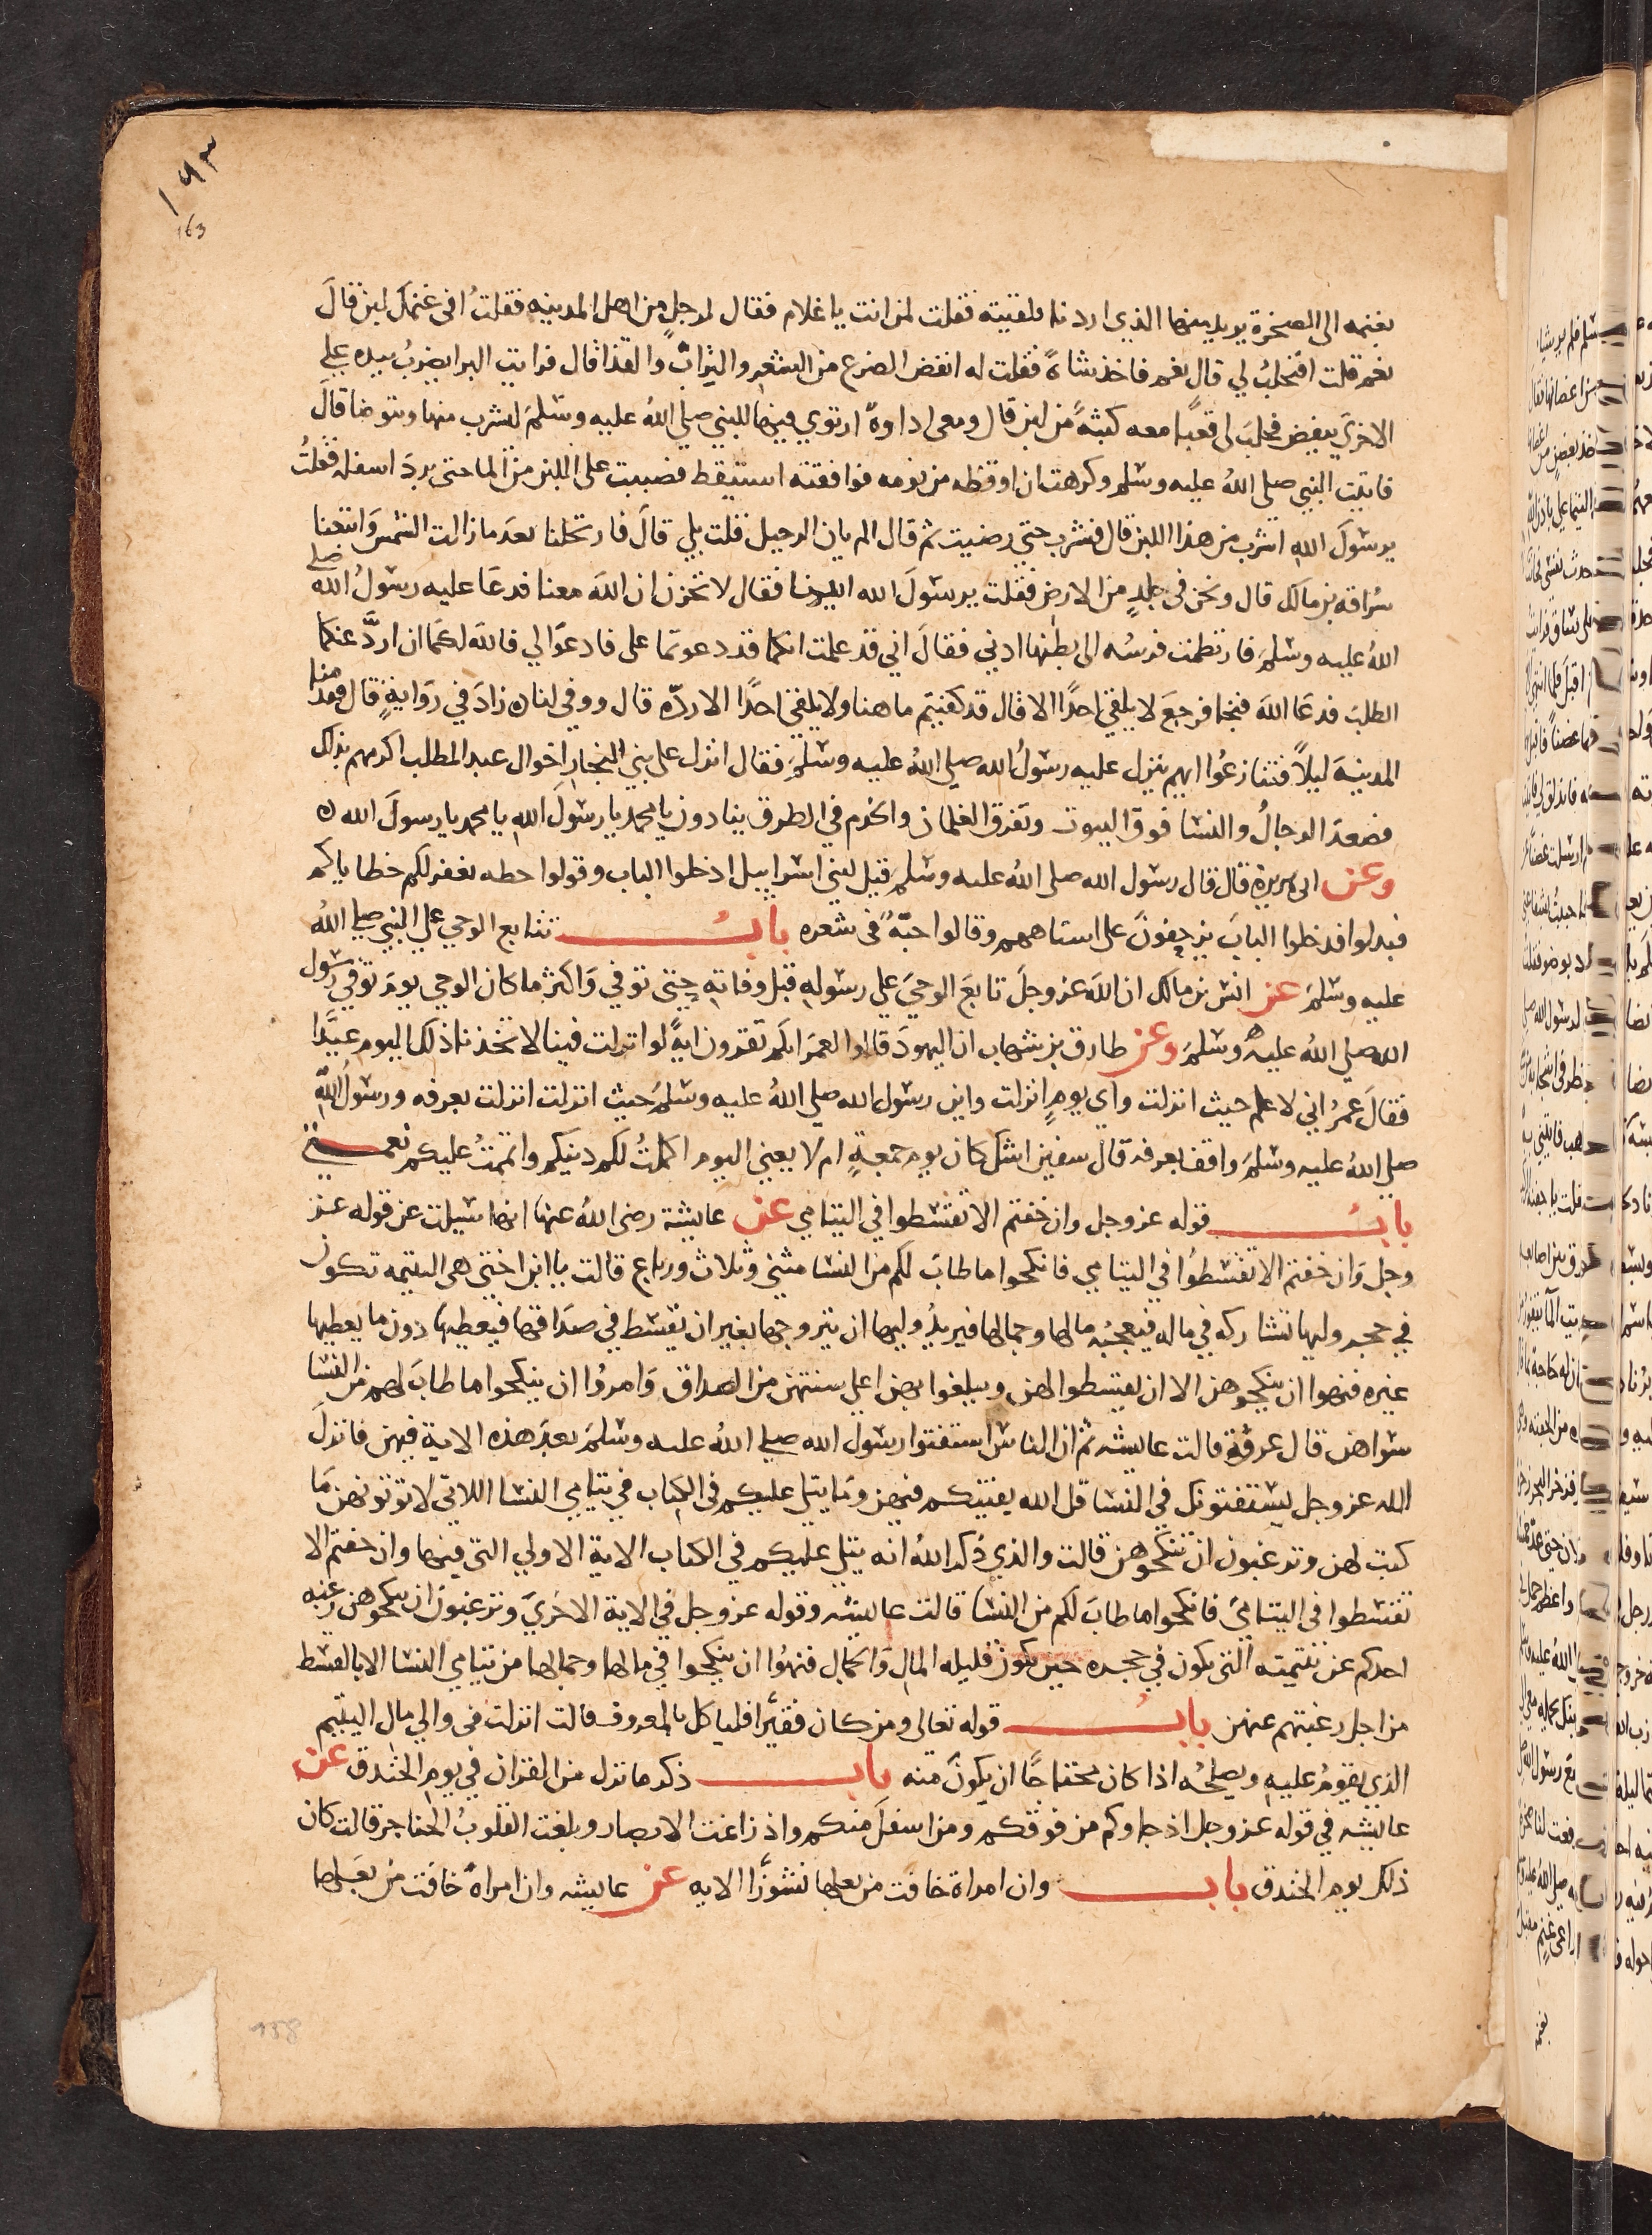 ١٦٣
163
بغنمه الى الصخرة يريد منها الذي اردنا فلقيته فقلت لمن انت يا غلام فقال لرجل من اهل المدينه فقلت افي غنمك لبن قال
نعم قلت افتحلب لي قال نعم فاخذ شاة فقلت له انفض الضرع من الشعر والتراب والقذا قال فرايت البرا يضرب بيده علي
الاخرى ينفض فحلب لى قعبا معه كثبة من لبن قال ومعى اداوة ارتوي فيها للنبي صلي الله عليه وسلم ليشرب منها ويتوضا قال
فاتيت النبي صلى الله عليه وسلم وكرهت ان اوقظه من نومه فوافقته استيقظ فصببت على اللبن من الما حتى برد اسفله فقلت
يرسول الله اشرب من هذا اللبن قال فشرب حتي رضيت ثم قال الم يان الرحيل قلت بلي قال فارتحلنا بعد ما زالت الشمس واتبعنا
سراقه بن مالك قال ونحن في جلد من الارض فقلت يرسول الله اتينا فقال لا تحزن ان الله معنا فدعا عليه رسول الله صلي
الله عليه وسلم فارتطمت فرسه الى بطنها ادني فقال اني قد علمت انكما قد دعوتما على فادعوا لي فالله لكما ان ارد عنكما
الطلب فدعا الله فنجا فرجع لا يلقي احدا الا قال قد كفيتم ما هنا ولا يلقي احدا الا رده قال ووفى لنا ن زاد في رواية قال فقدمنا
المدينة ليلا فتنازعوا ايهم ينزل عليه رسول الله صلي الله عليه وسلم فقال انزل على بني النجار اخوال عبد المطلب اكرمهم بذلك
فصعد الرجال والنسا فوق البيوت وتفرق الغلمان والخدم في الطرق ينادون يا محمد يا رسول الله يا محمد يا رسول الله ن
وعن ابى هريرة قال قال رسول الله صلى الله عليه وسلم قيل لبني اسرايل ادخلوا الباب وقولوا حطه نغفر لكم خطاياكم
فبدلوا فدخلوا الباب يزحفون على استاههم وقالوا حبة في شعره باب تتابع الوحي علي النبي صلي الله
عليه وسلم عن انس بن مالك ان الله عز وجل تابع الوحي علي رسوله قبل وفاته حتى توفي واكثر ما كان الوحي يوم توفي رسول
الله صلي الله عليه وسلم وعن طارق بن شهاب ان اليهود قالوا لعمر انكم تقرون اية لو انزلت فينا لاتخذنا ذلك اليوم عيدا
فقال عمر اني لا علم حيث انزلت واي يوم انزلت واين رسول الله صلي الله عليه وسلم حيث انزلت انزلت بعرفه ورسول الله
صلي الله عليه وسلم واقف بعرفه قال سفين اشك كان يوم جمعة ام لا يعني اليوم اكملت لكم دينكم واتممت عليكم نعمتي
باب قوله عز وجل وان خفتم الا تقسطوا في اليتامي عن عايشة رضى الله عنها انها سيلت عن قوله عز
وجل وان خفتم الا تقسطوا في اليتامي فانكحوا ما طاب لكم من النسا مثني وثلاث ورباع قالت يا ابن اختي هى اليتيمه تكون
في حجر وليها تشاركه في ماله فيعجبه مالها وجمالها فيريد وليها ان يتزوجها بغير ان يقسط في صداقها فيعطيها دون ما يعطيها
غيره فنهوا ان ينكحوهن الا ان يقسطوا لهن ويبلغوا بهن اعلي سنتهن من الصداق وامروا ان ينكحوا ما طاب لهم من النسا
سواهن قال عروة قالت عايشه ثم ان الناس استفتوا رسول الله صلي الله عليه وسلم بعد هذه الاية فيهن فانزل
الله عز وجل يستفتونك في النسا قل الله يفتيكم فيهن وما يتلى عليكم في الكتاب في يتامي النسا اللاتى لا توتونهن ما
كتب لهن وترغبون ان تنكحوهن قالت والذي ذكر الله انه يتلي عليكم في الكتاب الاية الاولي التي فيها وان خفتم الا
تقسطوا في اليتامي فانكحوا ما طاب لكم من النسا قالت عايشه وقوله عز وجل في الاية الاخري وترغبون ان ينكحوهن رغبه
احدكم عن يتيمته التى تكون في حجره حين تكون قليله المال والجمال فنهوا ان ينكحوا في مالها وجمالها من يتامي النسا الا بالقسط
من اجل رغبتهم عنهن باب قوله تعالى ومن كان فقيرا فلياكل بالمعروف قالت انزلت في والي مال اليتيم
الذي يقوم عليه ويصلحه اذا كان محتاجا ان يكون منه باب ذكر ما نزل من القران في يوم الخندق عن
عايشه في قوله عز وجل اذ جاوكم من فوقكم ومن اسفل منكم واذ زاغت الابصار وبلغت القلوب الحناجر قالت كان
ذلك يوم الخندق باب وان امراة خافت من بعلها نشوزا الايه عن عايشه وان امراة خافت من بعلها